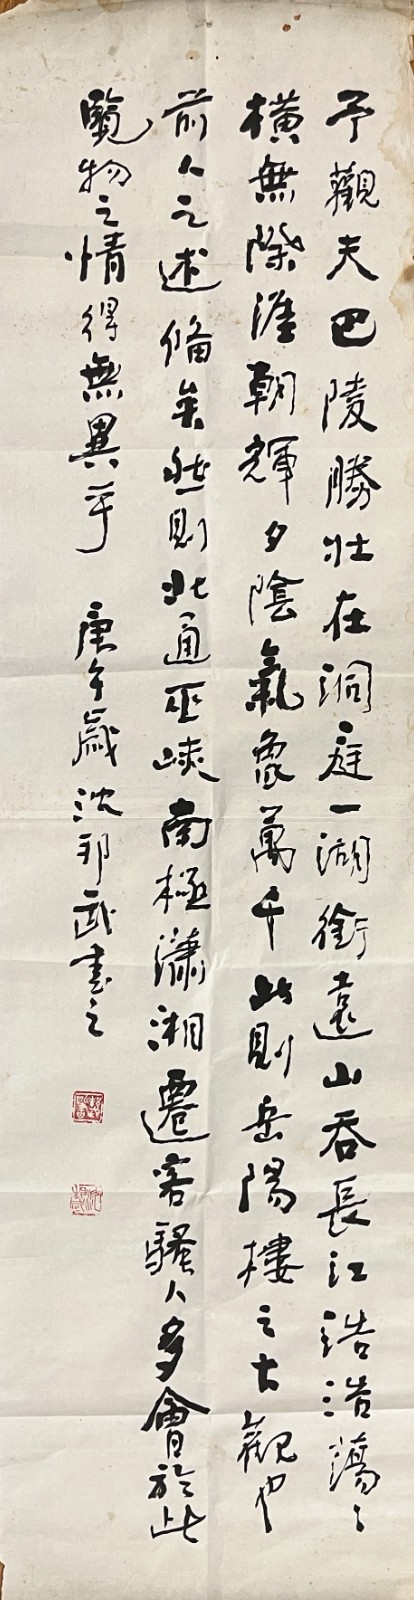 予觀夫巴陵勝壯在洞庭一湖銜遠山吞長江浩浩蕩々
橫無際涯朝輝夕陰氣象萬千此則岳陽樓之大觀也
前人之述備矣然則北通巫峽南極瀟湘遷客騷人多會於此
覽物之情得無異乎 庚午歲沈邦武書之